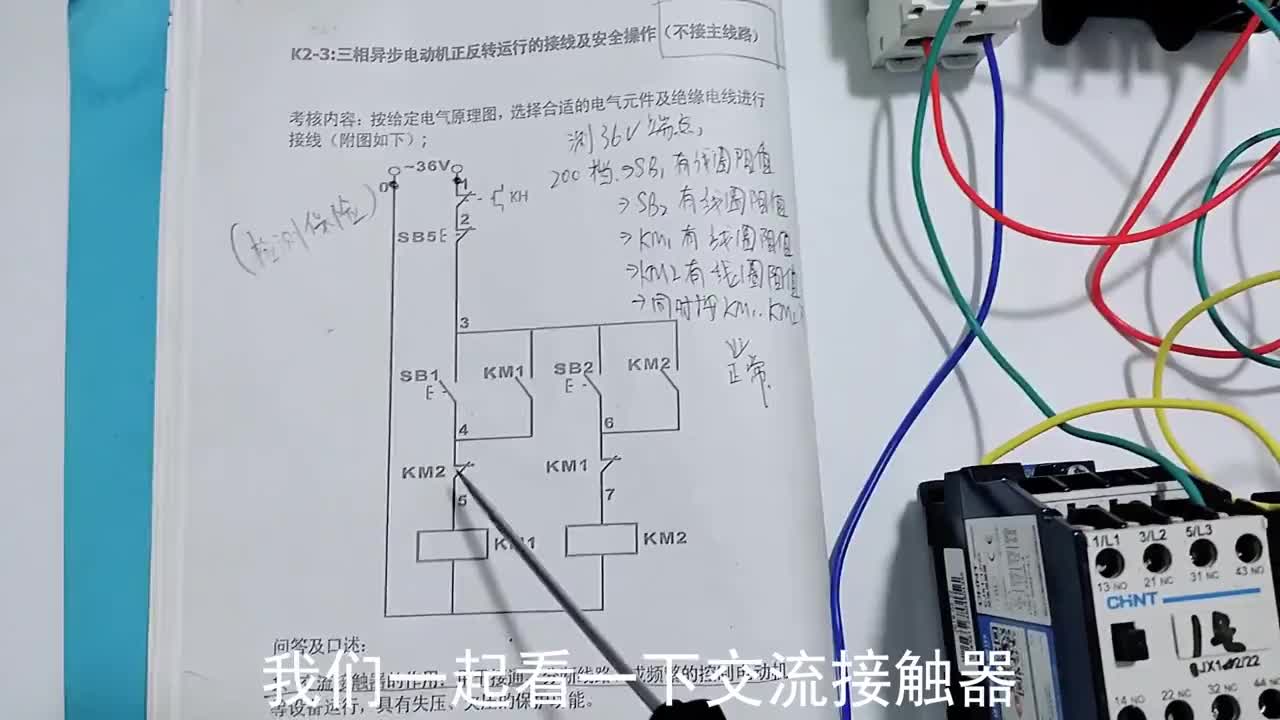 K2-3:三相异步电动机正反转运行的接线及安全操作(不接主线路)
考核内容：按给定电气原理图，选择合适的电气元件及绝缘电线进行
接线（附图如下）；
测36V端点，
200档→SB1有线圈阻值
→SB2有线圈阻值
→KM1有线圈阻值
→KM2有线圈阻值
→同时按KM1.KM2
正常.
(检测保险)
0
~36V
1
KH
2
SB5
3
SB1
KM1
SB2
KM2
4
6
KM2
KM1
5
7
KM1
KM2
问答及口述：
我们一起看一下交流接触器
等设备运行，具有失压、欠压的保护功能。
1/L1
3/L2
5/L3
13 NO
21 NC
31 NC
43 NO
CHNT
14 NO
22 NC
32 NC
44 NO